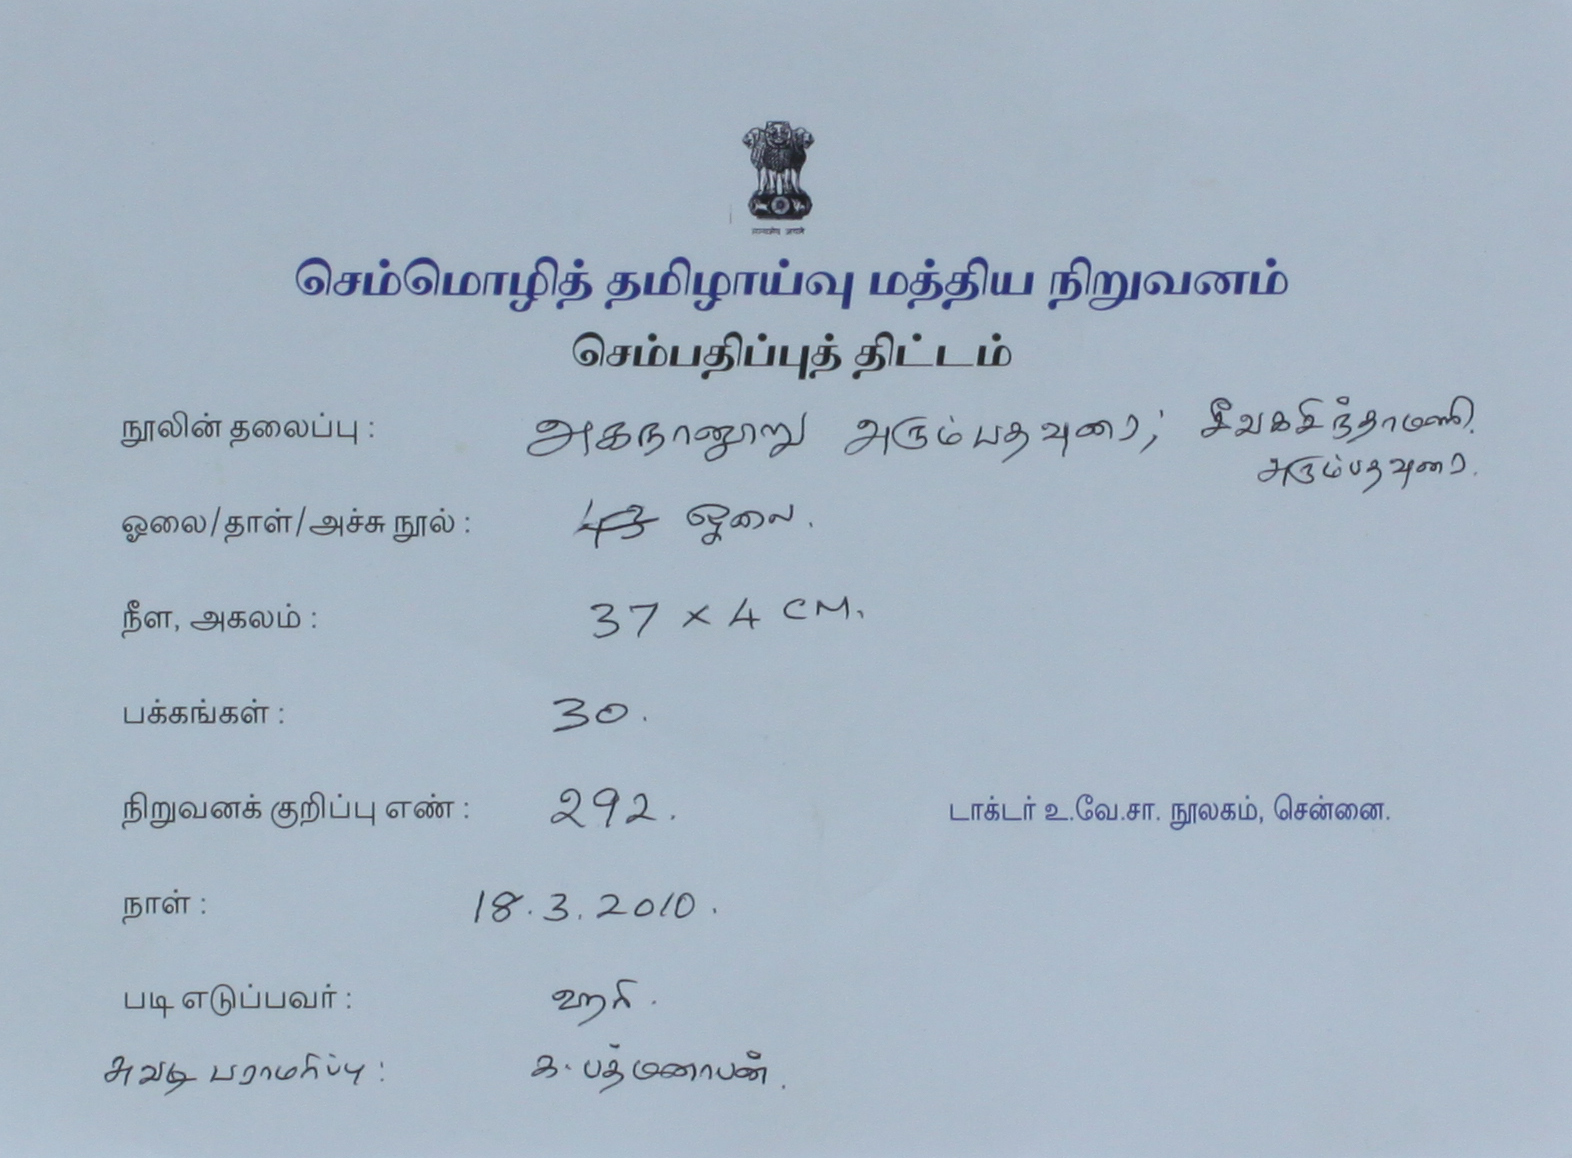 செம்மொழித் தமிழாய்வு மத்திய நிறுவனம்
செம்பதிப்புத் திட்டம்
நூலின் தலைப்பு : அகநானூறு அரும்பதவுரை; சீவகசிந்தாமணி
அரும்பதவுரை.
ஓலை/தாள்/அச்சு நூல் : ஓலை.
நீள, அகலம் : 37 x 4 CM.
பக்கங்கள் : 30.
நிறுவனக் குறிப்பு எண் : 292. டாக்டர் உ.வே.சா. நூலகம், சென்னை.
நாள் : 18.3.2010.
படி எடுப்பவர் : ஹரி.
சுவடி பராமரிப்பு : க. பத்மனாபன்.